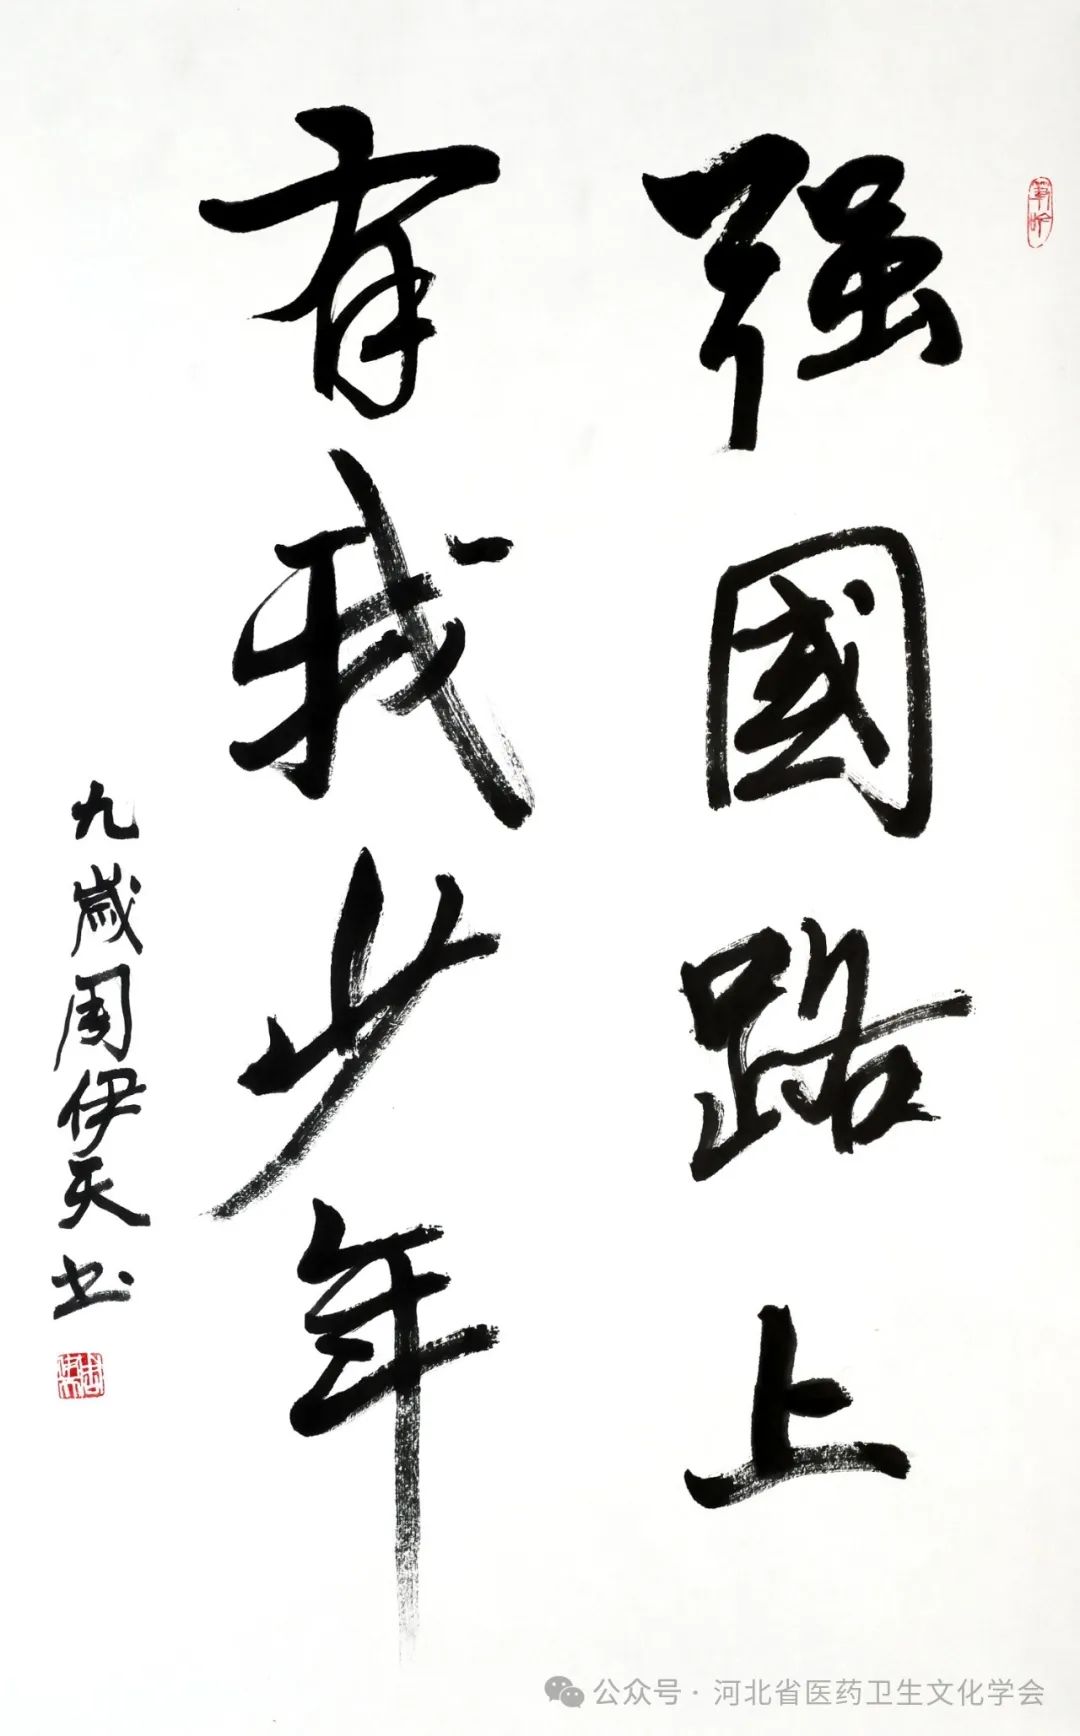 强國路上
有我少年
九歲周伊天书
公众号·河北省医药卫生文化学会